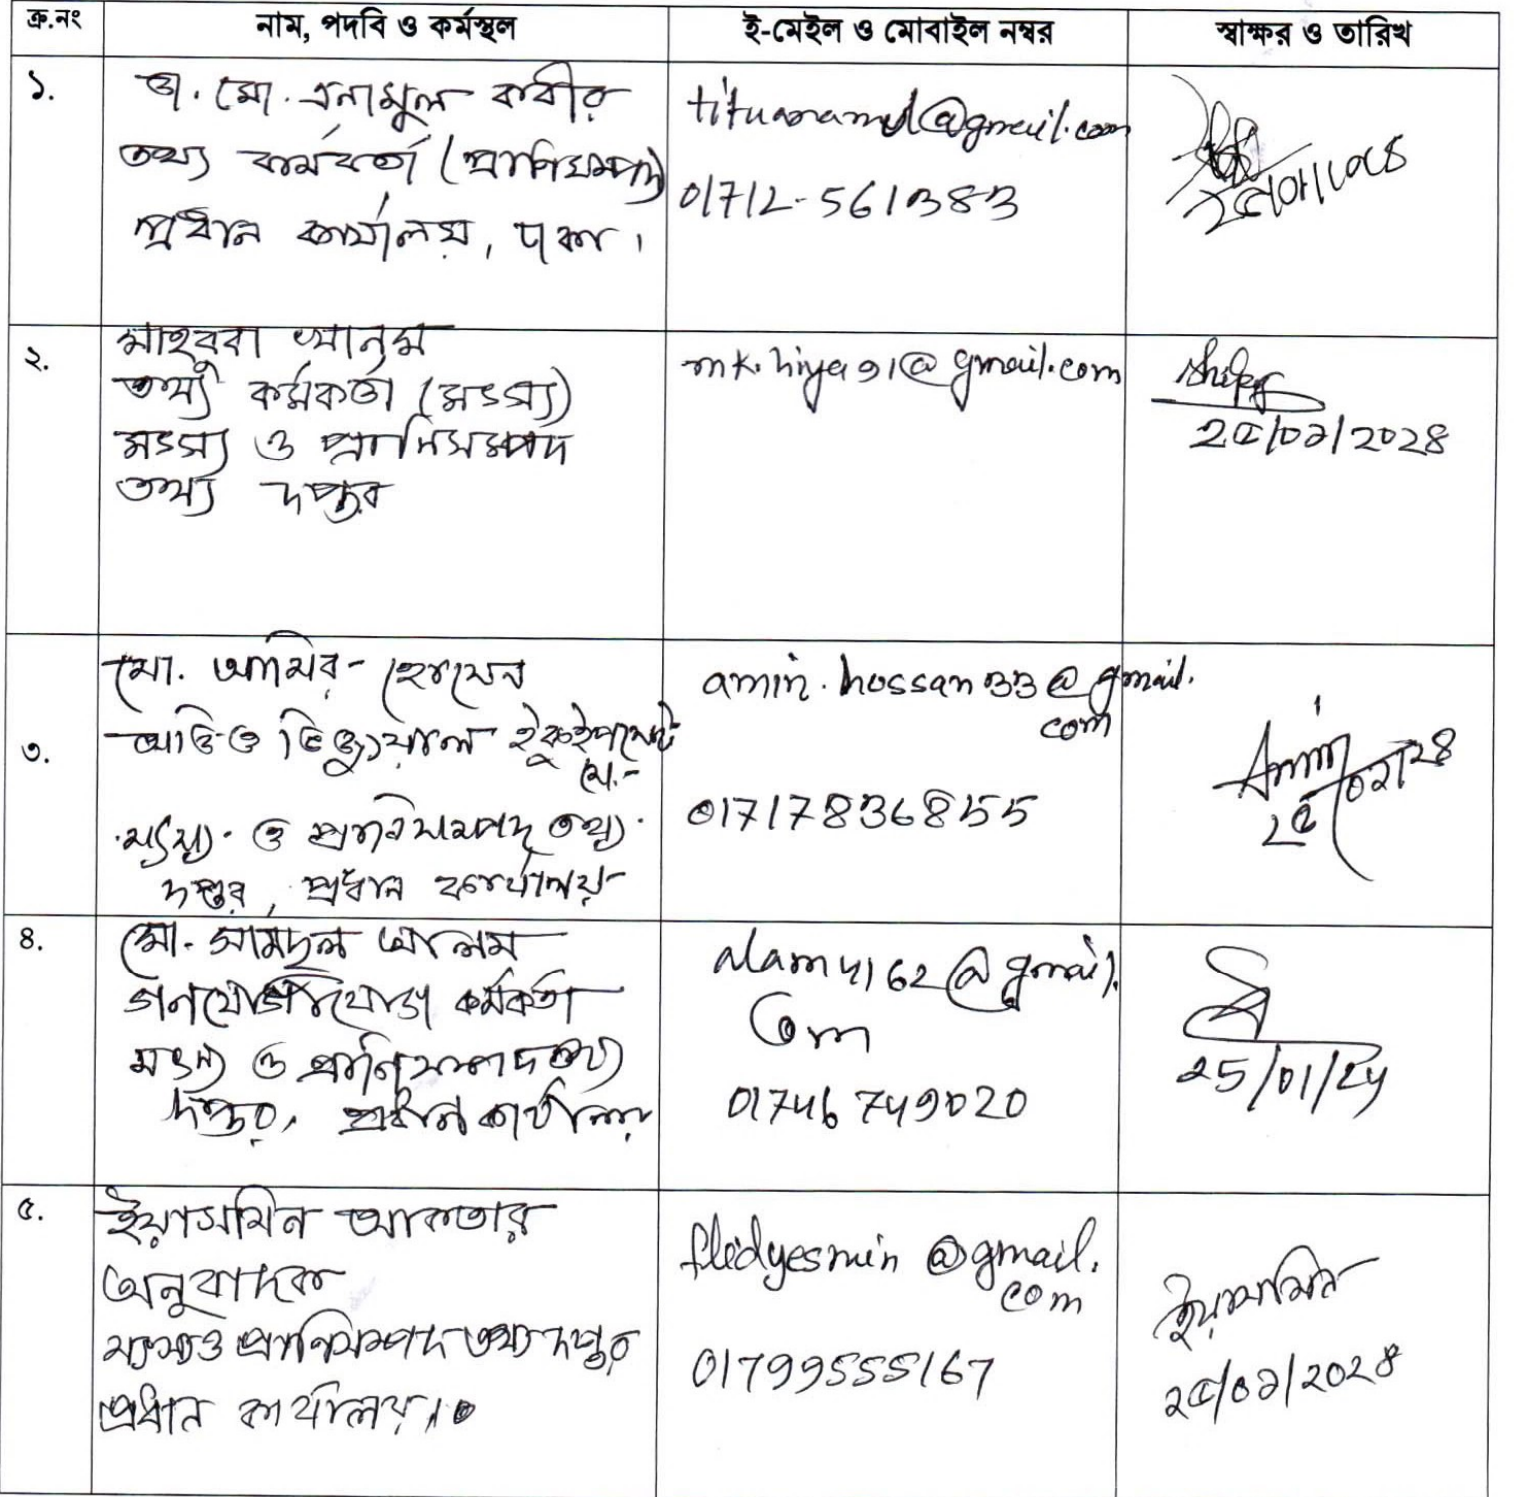 ক্র.নং নাম, পদবি ও কর্মস্থল ই-মেইল ও মোবাইল নম্বর স্বাক্ষর ও তারিখ
১.
ডা. মো. এনামুল কবীর
তথ্য কর্মকর্তা (প্রাণিসম্পদ)
প্রধান কার্যালয়, ঢাকা।
@gmail.com
01712-561383
২.
মাহবুবা খানুম
তথ্য কর্মকর্তা (মৎস্য)
মৎস্য ও প্রাণিসম্পদ
তথ্য দপ্তর
mk.hiya91@gmail.com
২৫/০১/২০২৪
৩.
মো. আমির হোসেন
অডিও ভিজ্যুয়াল ইকুইপমেন্ট
মৎস্য ও প্রাণিসম্পদ তথ্য
দপ্তর, প্রধান কার্যালয়
amin.hossan33@gmail.
com
01717836855
Amin
৪.
মো. সামছুল আলম
গনযোগাযোগ কর্মকর্তা
মৎস্য ও প্রাণিসম্পদ তথ্য
দপ্তর, প্রধান কার্যালয়
alam4162@gmail.
Com
01746749020
25/01/24
৫.
ইয়াসমিন আকতার
অনুবাদক
মৎস্য ও প্রাণিসম্পদ তথ্য দপ্তর
প্রধান কার্যালয়।
flidyesmin@gmail.
com
01799555167
ইয়াসমিন
২৫/০১/২০২৪